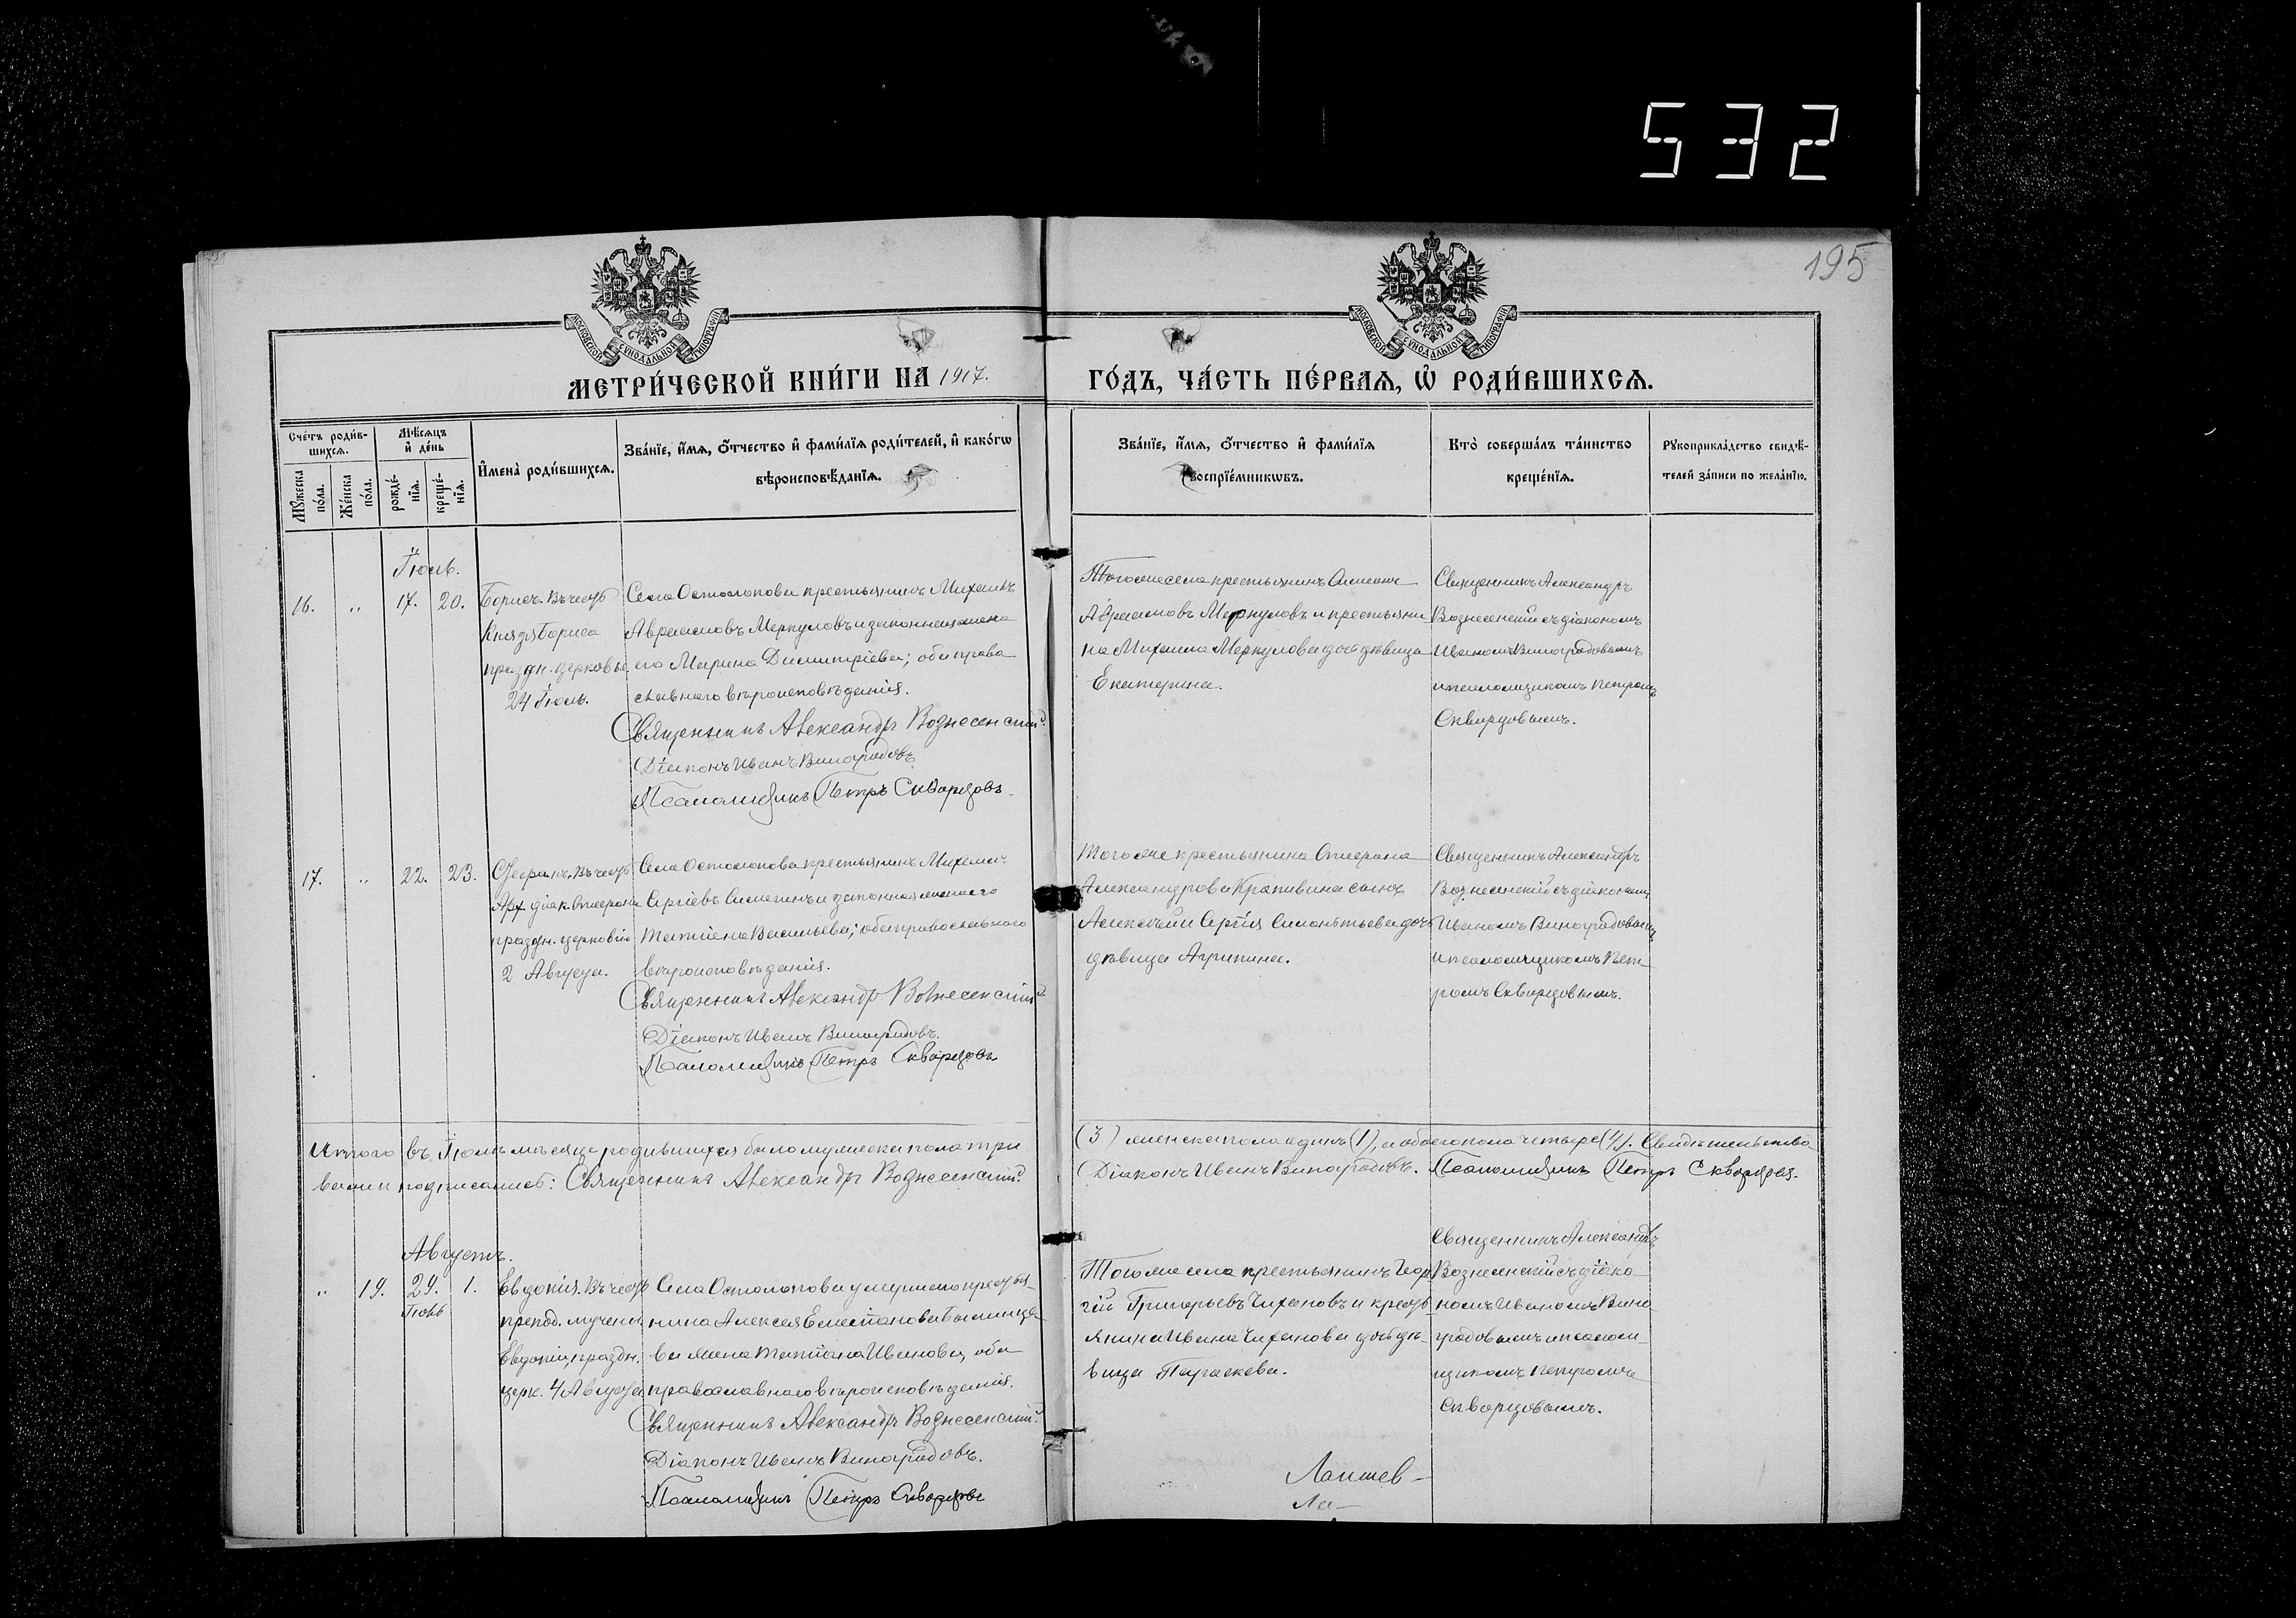 532
195
МОСКОВСКОЙ СУНОДАЛЬНОЙ ТИПОГРАФІИ
МОСКОВСКОЙ СУНОДАЛЬНОЙ ТИПОГРАФІИ
МЕТРИ́ЧЕСКОЙ КНИ́ГИ НА 1917.
ГО́ДЪ, ЧА́СТЬ ПЕ́РВАѦ, Ѡ РОДИ́ВШИХСѦ.
Сче́тъ роди́в-
шихсѧ.
Мѣ́сѧцъ
и де́нь
Мꙋ́жеска
по́ла.
Же́нска
по́ла.
рожде́-
нїѧ.
креще́-
нїѧ.
Имена̀ роди́вшихсѧ.
Зва́нїе, и́мѧ, ѻ́тчество и фами́лїѧ роди́телей, и како́гѡ
вѣроисповѣ́данїѧ.
Зва́нїе, и́мѧ, ѻ́тчество и фами́лїѧ
воспрїе́мникѡвъ.
Кто̀ соверша́лъ та́инство
креще́нїѧ.
Рꙋкоприкла́дство свидѣ́-
телей за́писи по жела́нїю.
Іюль.
16. „ 17. 20.
Борисъ. Въ честь
Князя Бориса
праздн. церковью
24 Іюль.
Села Остолопова крестьянинъ Михаилъ
Авраамовъ Меркуловъ и законная жена
его Марина Димитріева; оба право
славнаго вѣроисповѣданія.
Священникъ Александръ Вознесенскій.
Діаконъ Иванъ Виноградовъ
Псаломщикъ Петръ Скворцовъ.
Тогоже села крестьянинъ
Авраамовъ Меркуловъ и крестьяни
на Михаила Меркулова дочь дѣвица
Екатерина.
Священникъ Александръ
Вознесенскій съ діакономъ
Иваномъ Виноградовымъ
и псаломщикомъ Петромъ
Скворцовымъ.
17. „ 22. 23.
Стефанъ. Въ честь
Арх діак. Стефана
праздн. церковію
2 Августа.
Села Остолопова крестьянинъ Михаилъ
Сергіевъ и законная жена его
Татіана Васильева; оба православнаго
вѣроисповѣданія.
Священникъ Александръ Вознесенскій
Діаконъ Иванъ Виноградовъ.
Псаломщикъ Петръ Скворцовъ
Того же крестьянина Стефана
Александрова Крапивина сынъ
Алексѣй и Сергія дочь
дѣвица Агрипина.
Священникъ Александръ
Вознесенскій съ діакономъ
Иваномъ Виноградовымъ
и псаломщикомъ Пет-
ромъ Скворцовымъ.
Итого въ Іюлѣ мѣсяцѣ родившихся было мужеска пола три
(3) женска пола одинъ (1), а обоего пола четыре (4). Свидѣтельство
вали и подписались: Священникъ Александръ Вознесенскій.
Діаконъ Иванъ Виноградовъ. Псаломщикъ Петръ Скворцовъ.
Августъ.
„ 19. 29. 1.
Іюль
Евдокія. Въ честь
препод. мучениц
Евдокіи, праздн.
церк. 4 Августа
Села Остолопова умершаго кресть
янина Алексея
ва жена Татіана Иванова, оба
православнаго вѣроисповѣданія.
Священникъ Александръ Вознесенскій.
Діаконъ Иванъ Виноградовъ.
Псаломщикъ Петръ Скворцовъ
Тогоже села крестьянинъ Геор
гій Григорьевъ Чихановъ и кресть
янина Ивана Чиханова дочь дѣ-
вица Параскева.
Священникъ Александръ
Вознесенскій съ діако-
номъ Иваномъ Вино-
градовымъ и псалом
щикомъ Петромъ
Скворцовымъ.
Лаишев-